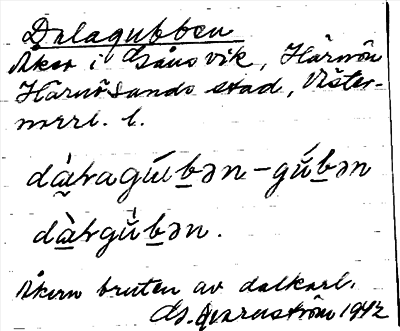 Dalagubben
Åker i Gånsvik, Härnön
Härnösands stad, Väster-
norrl. l.
dàɫagúbən – gúbən
dàɫgùbən.
Åkern bruten av dalkarl.
Qvarnström 1942